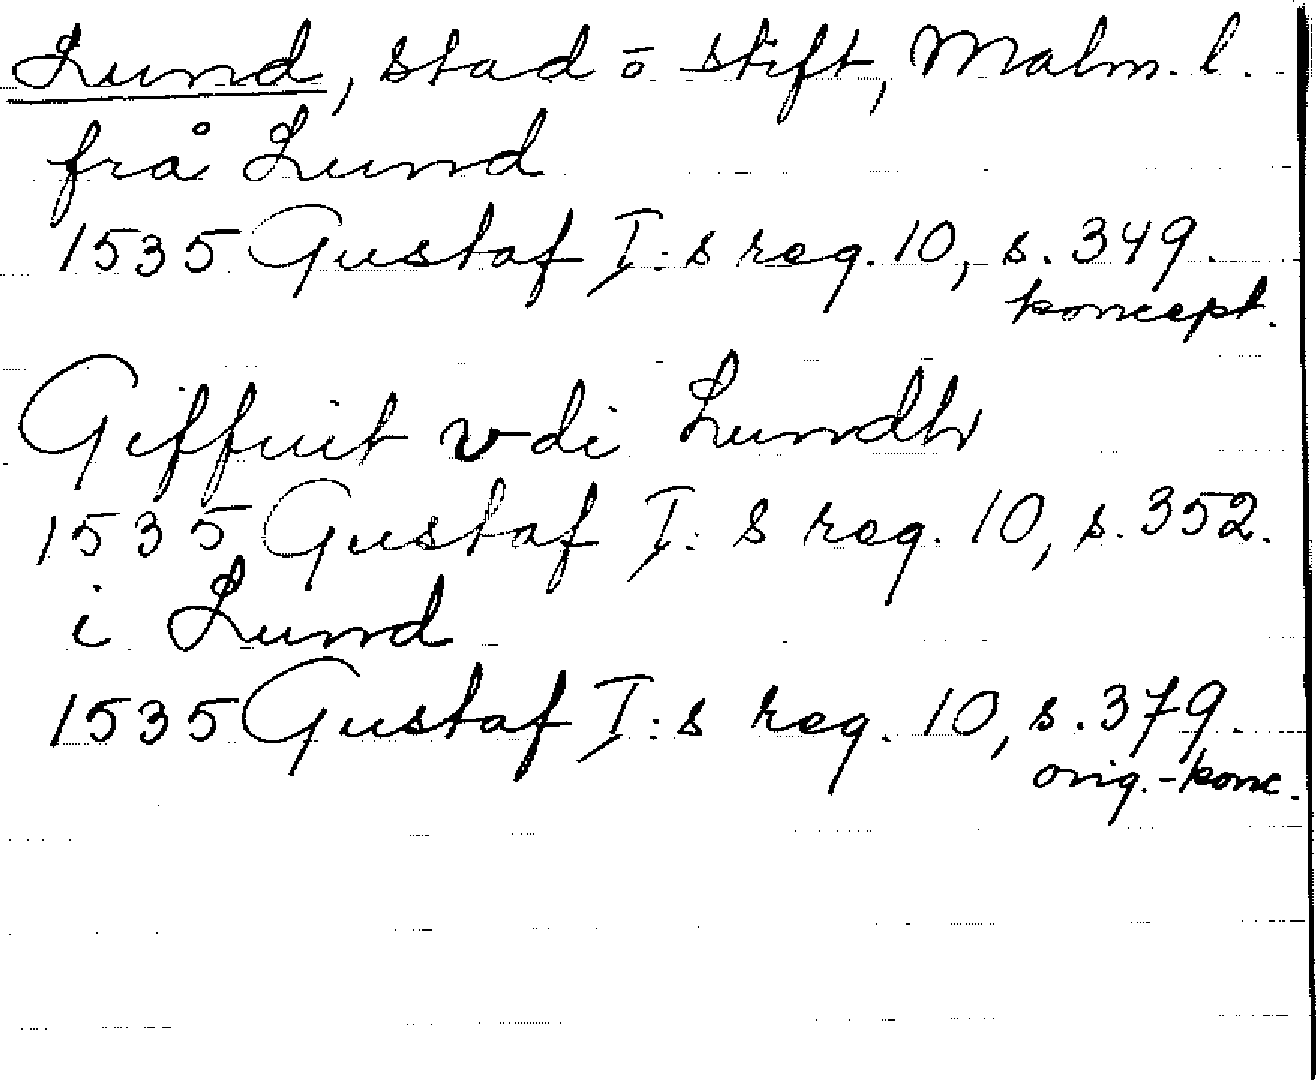 Lund, stad ō stift, Malm. l.
frå Lund
1535 Gustaf I:s reg. 10, s. 349.
koncept.
Giffuit vdi Lundh
1535 Gustaf I:s reg. 10, s. 352.
i Lund
1535 Gustaf I:s reg. 10, s. 379.
orig.-konc.